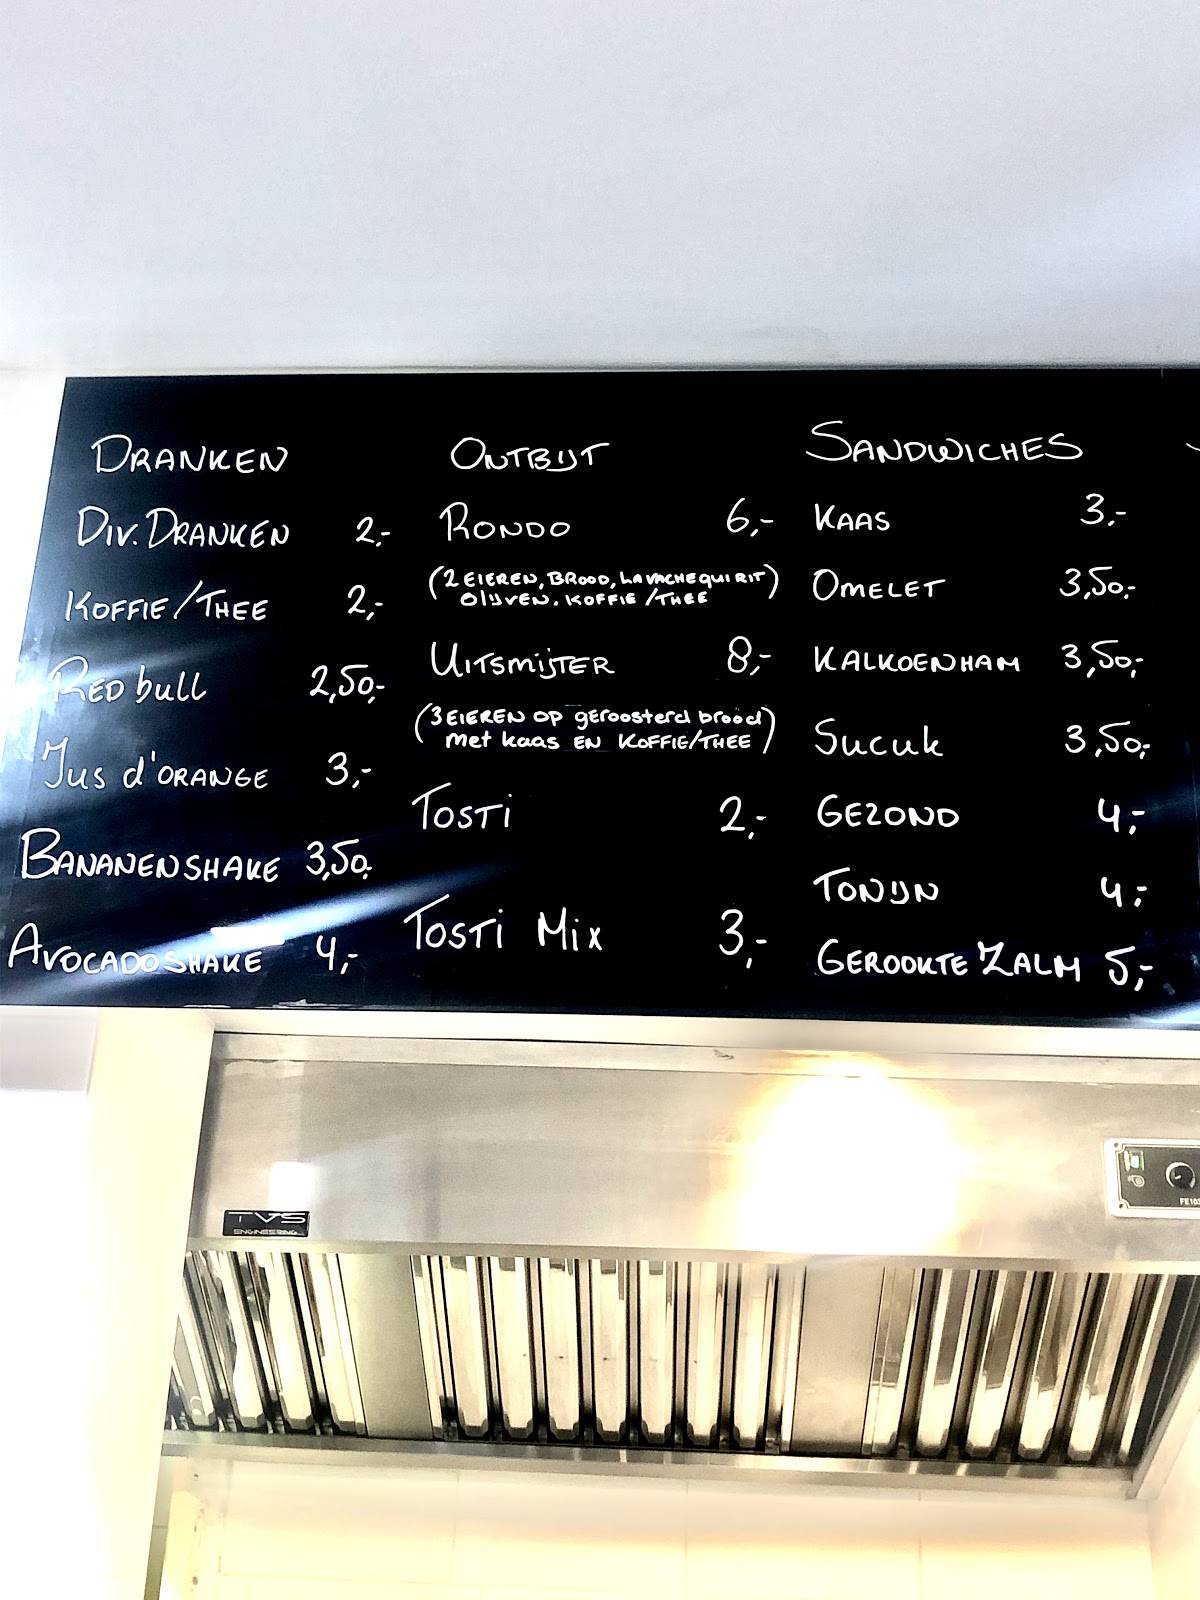 DRANKEN
DIV. DRANKEN 2,-
KOFFIE/THEE 2,-
RED bull 2,50,-
Jus d'ORANGE 3,-
BANANENSHAKE 3,50,-
AVOCADOSHAKE 4,-
ONTBIJT
RONDO 6,-
(2 EIEREN, BROOD, LAVACHEQUIRIT)
OlIJVEN. KOFFIE/THEE
UITSMIJTER 8,-
(3 EIEREN OP geroosterd brood)
met kaas EN KOFFIE/THEE)
TOSTI 2,-
TOSTI MIX 3,-
SANDWICHES
KAAS 3,-
OMELET 3,50,-
KALKOENHAM 3,50,-
Sucuk 3,50,-
GEZOND 4,-
TONIJN 4,-
GEROOKTE ZALM 5,-
TVS
ENGINEERING